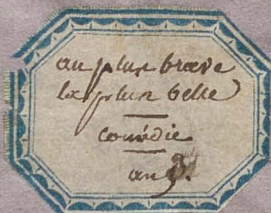 au plus brave
la plus belle
comédie
an 9.